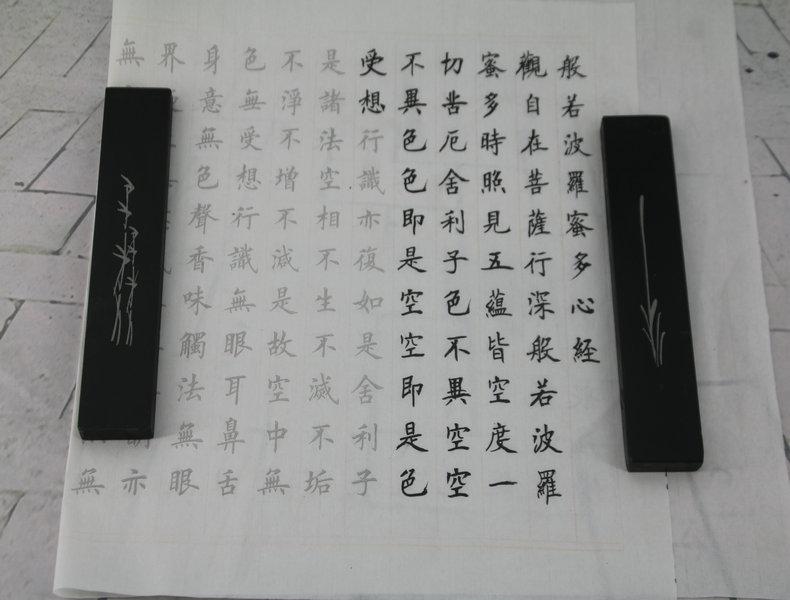 般若波羅蜜多心経
觀自在菩薩行深般若波羅
蜜多時照見五蘊皆空度一
切苦厄舍利子色不異空空
不異色色即是空空即是色
受想行識亦復如是舍利子
是諸法空相不生不滅不垢
不淨不增不減是故空中無
色無受想行識無眼耳鼻舌
身意無色聲香味觸法無眼
界亦
無無